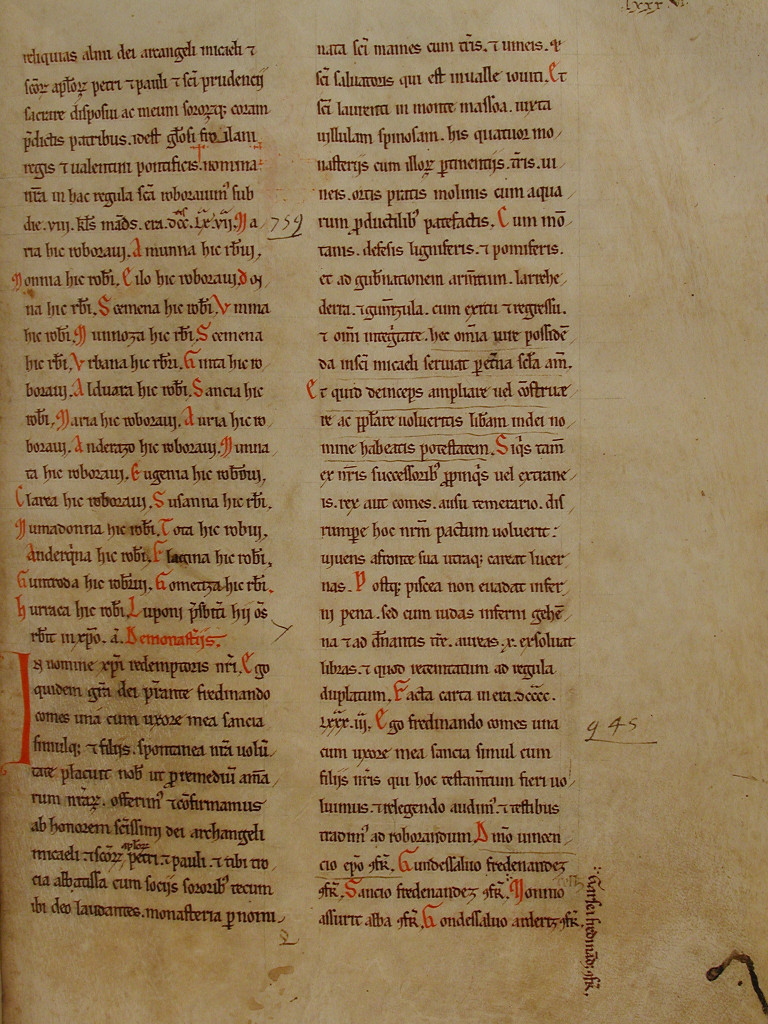 lxxx vi
reliquias almi dei arcangeli micaeli ⁊
scōꝝ aplōꝝ petri ⁊ pauli ⁊ sci prudencij
sacrare disposui ac meum sororꝝq; coram
p̄dictis patribus. idest
regis ⁊ ualentini pontificis. nomina
nr̄a in hac regula scā roborauim᷒ sub
die. viii. kls̄ mads̄. era. dccc.
ria hic roboraui. A munna hic rbīui,
Nonnia hic robī. Cilo hic roboraui, Do
na hic rbī. Scemena hic robī Vnnna
hic robī. Munnoza hic rbī. Scemena
hic rbī. Vrbana hic rbīi. Guita hic ro
boraui. Alduara hic robī. Sancia hic
robī, Maria hic roboraui. Auria hic ro
boraui. Anderazo hic roboraui. Munna
ta hic roboraui. Eugenia hic
Clarea hic roboraui. Susanna hic rbī.
Numadonna hic robī. Tota hic robiu.
Anderq̄na hic robī. Flagina hic robī,
Guntroda hic Gometiza hic rbī.
hurraca hic robī. Luponi p̄sbīti hij oēs
rbīt in xp̄o. a. De monast̄iis.
In nomine xp̄i redemptoris nr̄i. Ego
quidem grā dei p̄stante fredinando
comes una cum uxore mea sancia
simulq; ⁊ filijs. spontanea nr̄a uolū
tate placuit nob̄ ut pro remediū anīa
rum nr̄aꝝ. offerim᷒ ⁊ cōfirmamus
ab honorem scīssimi dei archangeli
micaeli ⁊ scōꝝ aplōꝝ petri ⁊ pauli ⁊ tibi tro
cia abbatissa cum socijs sororib᷒ tecum
ibi deo laudantes. monasteria p̄ nomi
759
nata scī mames cum tr̄is. ⁊ uineis. ⁊
scī saluatoris qui est in ualle iouiti. Et
scī laurenti in monte massoa. iuxta
uillulam spinosam. his quatuor mo
nasterijs cum illoꝝ p̄tinentijs. tr̄is. ui
neis. ortis pratis molinis cum aqua
rum p̄ductilib᷒ patefactis. Cum mō
tanis. defesis ligniferis. ⁊ pomiferis.
et ad gub̄nationem arm̄tum. larrehe
derra. ⁊ gun̄tzula. cum exitu ⁊ regressu.
⁊ om̄i inteḡtate. hec om̄ia iure possidē
da in scī micaeli seruiat p̄ et̄na sclā am̄.
Et quid deinceps ampliare uel cōstrue
re ac pp̄lare uolueritis lib̄am inde no
mine habeatis potestatem. Siq̄s tam̄
ex nr̄is successorib᷒ p̄pinq̄s uel extrane
is. rex aut comes. ausu temerario. dis
rumpe hoc nr̄m pactum uoluerit:
uiuens afronte sua utraq; careat lucer
nas. Postq; picea non euadat infer
ni pena. sed cum iudas inferni gehē
na ⁊ ad dn̄antis tr̄e. aureas. x. exsoluat
libras. ⁊ quod retemtatum ad regula
duplatum. Facta carta in era. dcccc.
lxxx. iii. Ego fredinando comes una
cum uxore mea sancia simul cum
filijs nr̄is qui hoc testam̄tum fieri uo
luimus. ⁊ relegendo audim᷒ ⁊ testibus
tradim᷒ ad roborandum. Dm̄o uincen
cio ep̄o ꝯfr̄. Gundessaluo fredenandez
ꝯfr̄. Sancio fredenandez ꝯfr̄. Monnio
assurit alba ꝯfr̄. Gondessaluo ꝯfr̄.
945